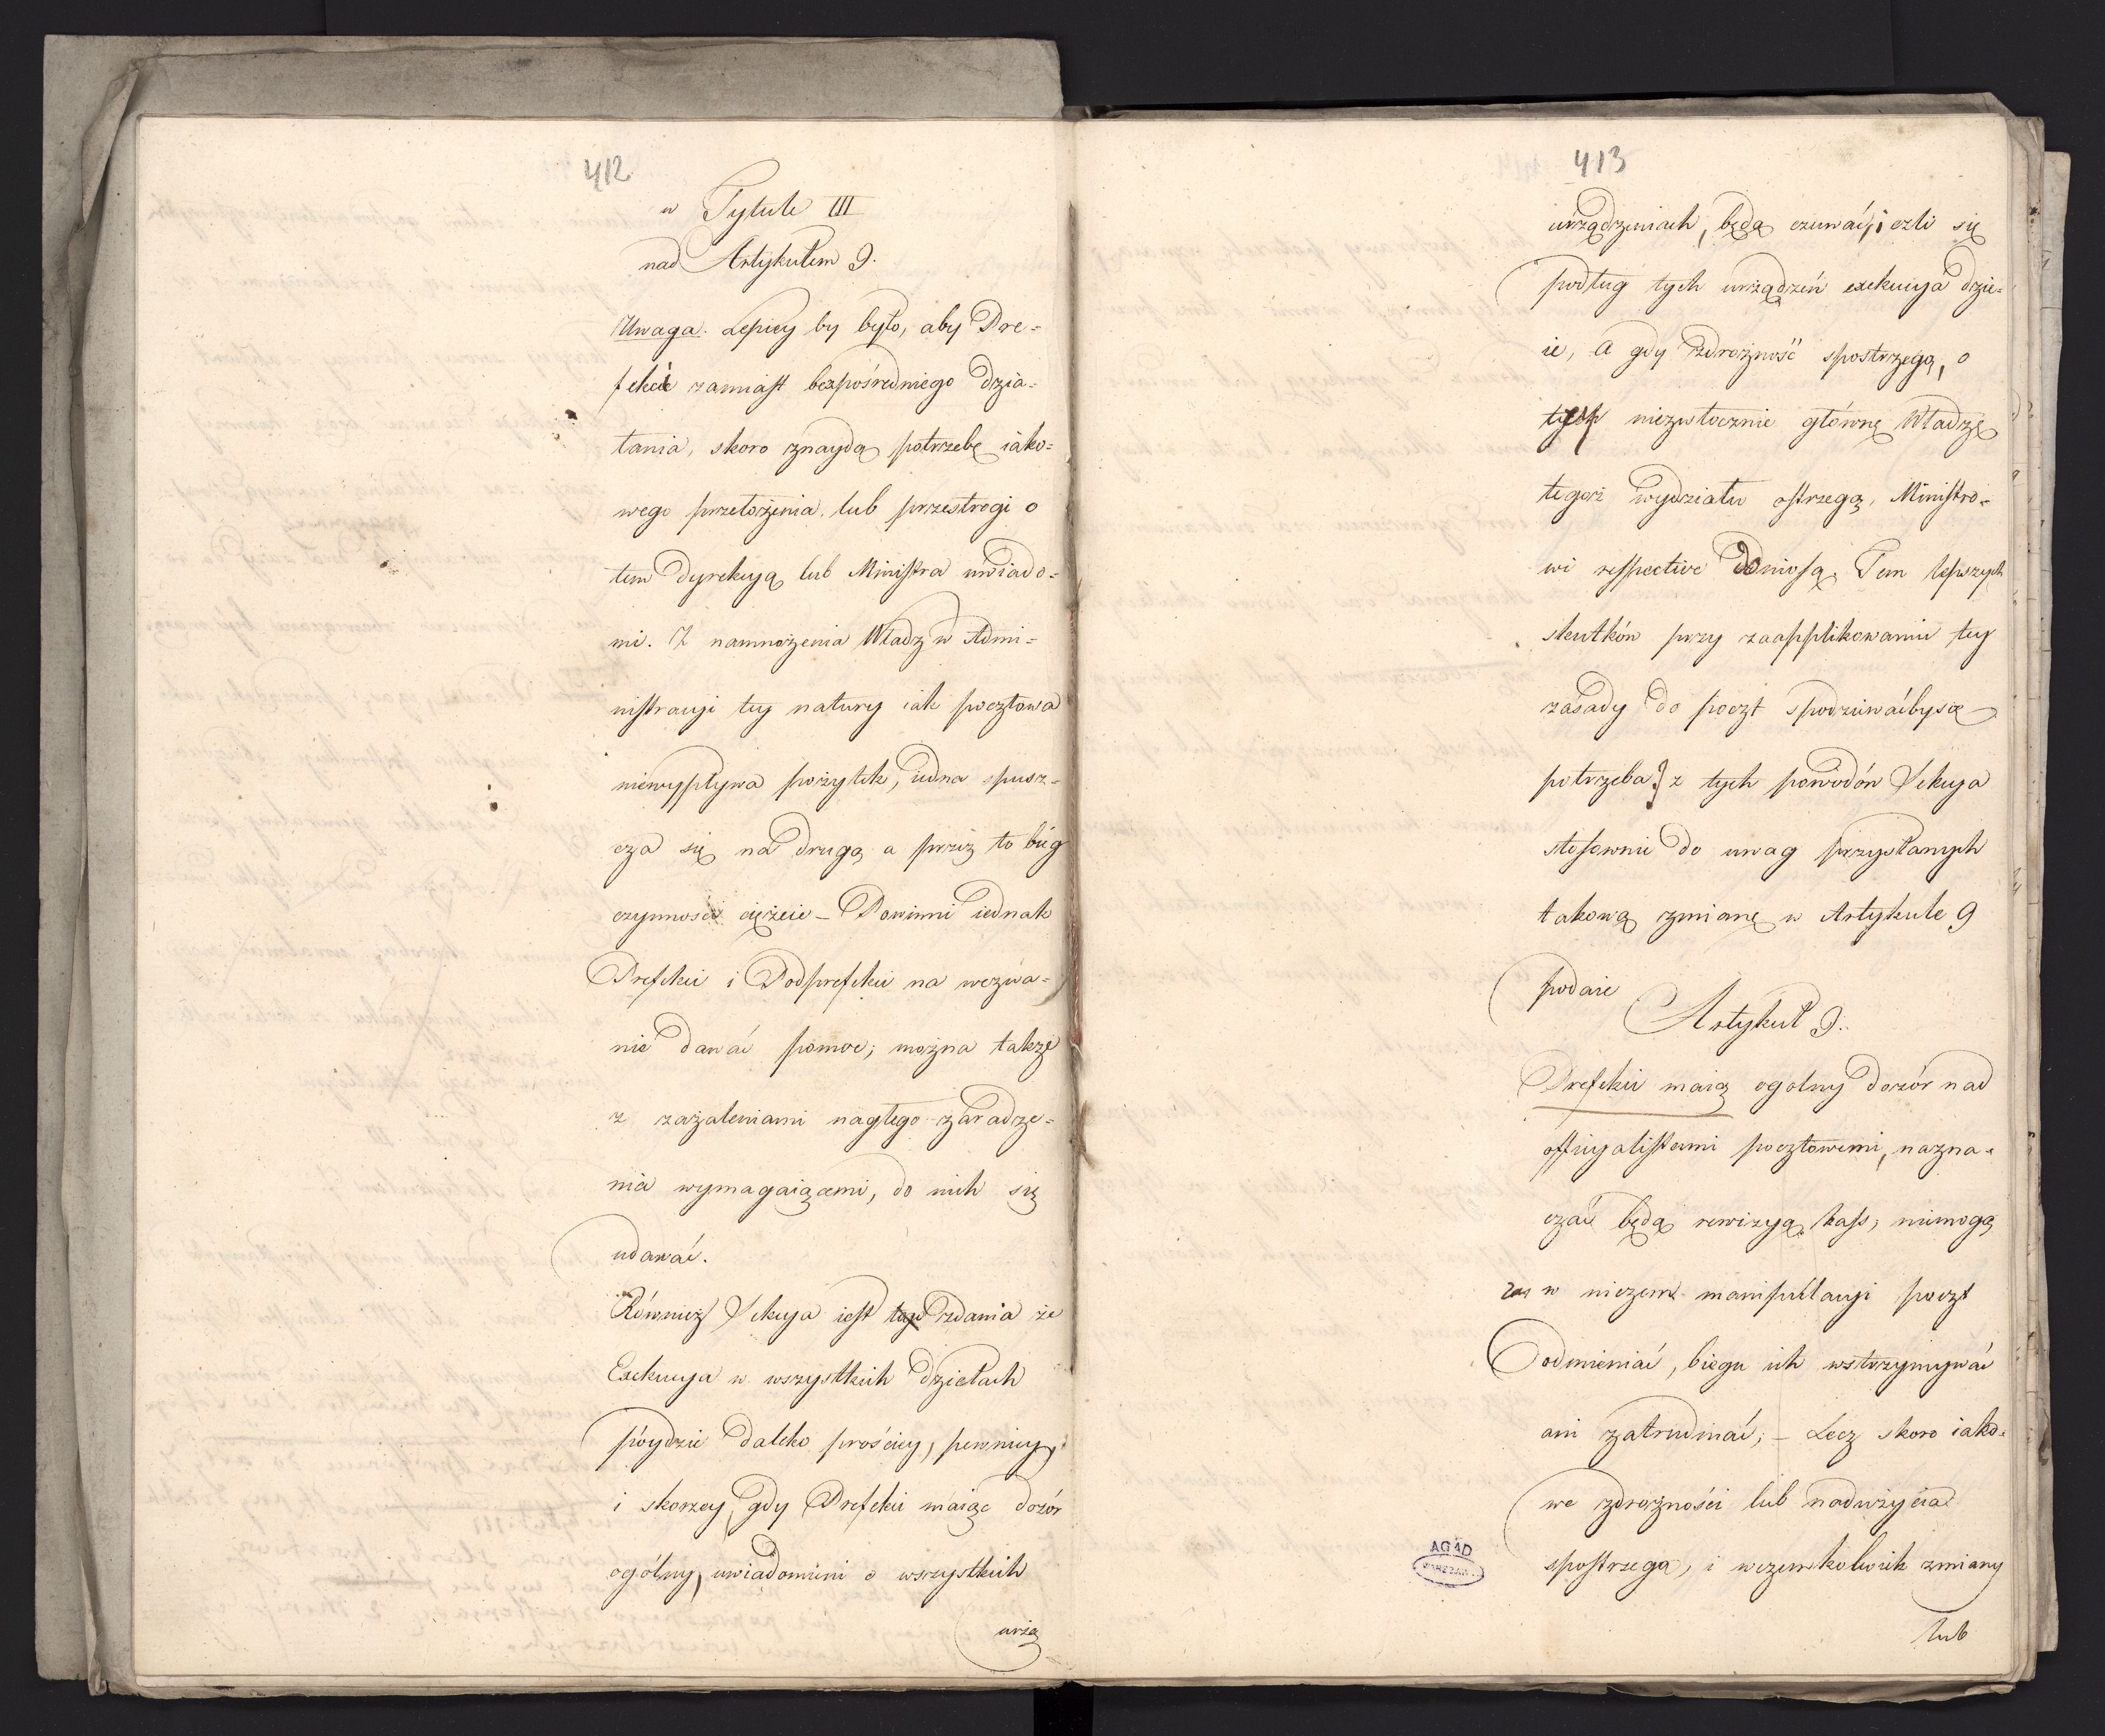 412
w Tytule III
nad Artykułem 9.
Uwaga. Lepiey by było, aby Pre-
fekci zamiast bezpośredniego dzia-
łania, skoro znaydą potrzebę iako-
wego przełożenia lub przestrogi o
tem Dyrekcyą lub Ministra uwiado-
mi. Z namnożenia Władz w Admi-
nistracyi tey natury iak pocztowa
niewypływa pożytek, iedna spusz-
cza się na drugą a przez to bieg
czynności cięższe – Powinni iednak
Prefekci i Podprefekci na wezwa-
nie dawać pomoc; można także
z zażaleniami nagłego zaradze-
nia wymagaiącemi, do nich się
udawać.
Również Sekcya iest zdania że
Exekucya w wszystkich dziełach
póydzie daleko prościey, pewniey,
i skorzey, gdy Prefekci maiąc dozór
ogólny, uwiadomieni o wszystkich
urzą
413
urządzeniach, będą czuwać, i czli się
podług tych urządzeń exekucya dzie-
ie, a gdy zdrożność spostrzegą, o
niezwłocznie główną Władzę
tegoż wydziału ostrzegą, Ministro-
wi respective doniosą. Tem lepszych
skutków przy zaapplikowaniu tey
zasady do poczt spodziewaćbysię
potrzeba; z tych powodów Sekcya
stosownie do uwag przysłanych
takową zmianę w Artykule 9
podaie
Artykuł 9.
Prefekci maią ogolny dozór nad
officyalistami pocztowemi, nazna-
czać będą rewizyą kass, niemogą
zaś w niczem manipulacyi poczt
odmieniać, biegu ich wstrzymywać
ani zatrudniać; – Lecz skoro iako-
we zdrożności lub nadużycia
spostrzegą, i wczemkolwiek zmiany
lub
AGAD
WARSZAWA